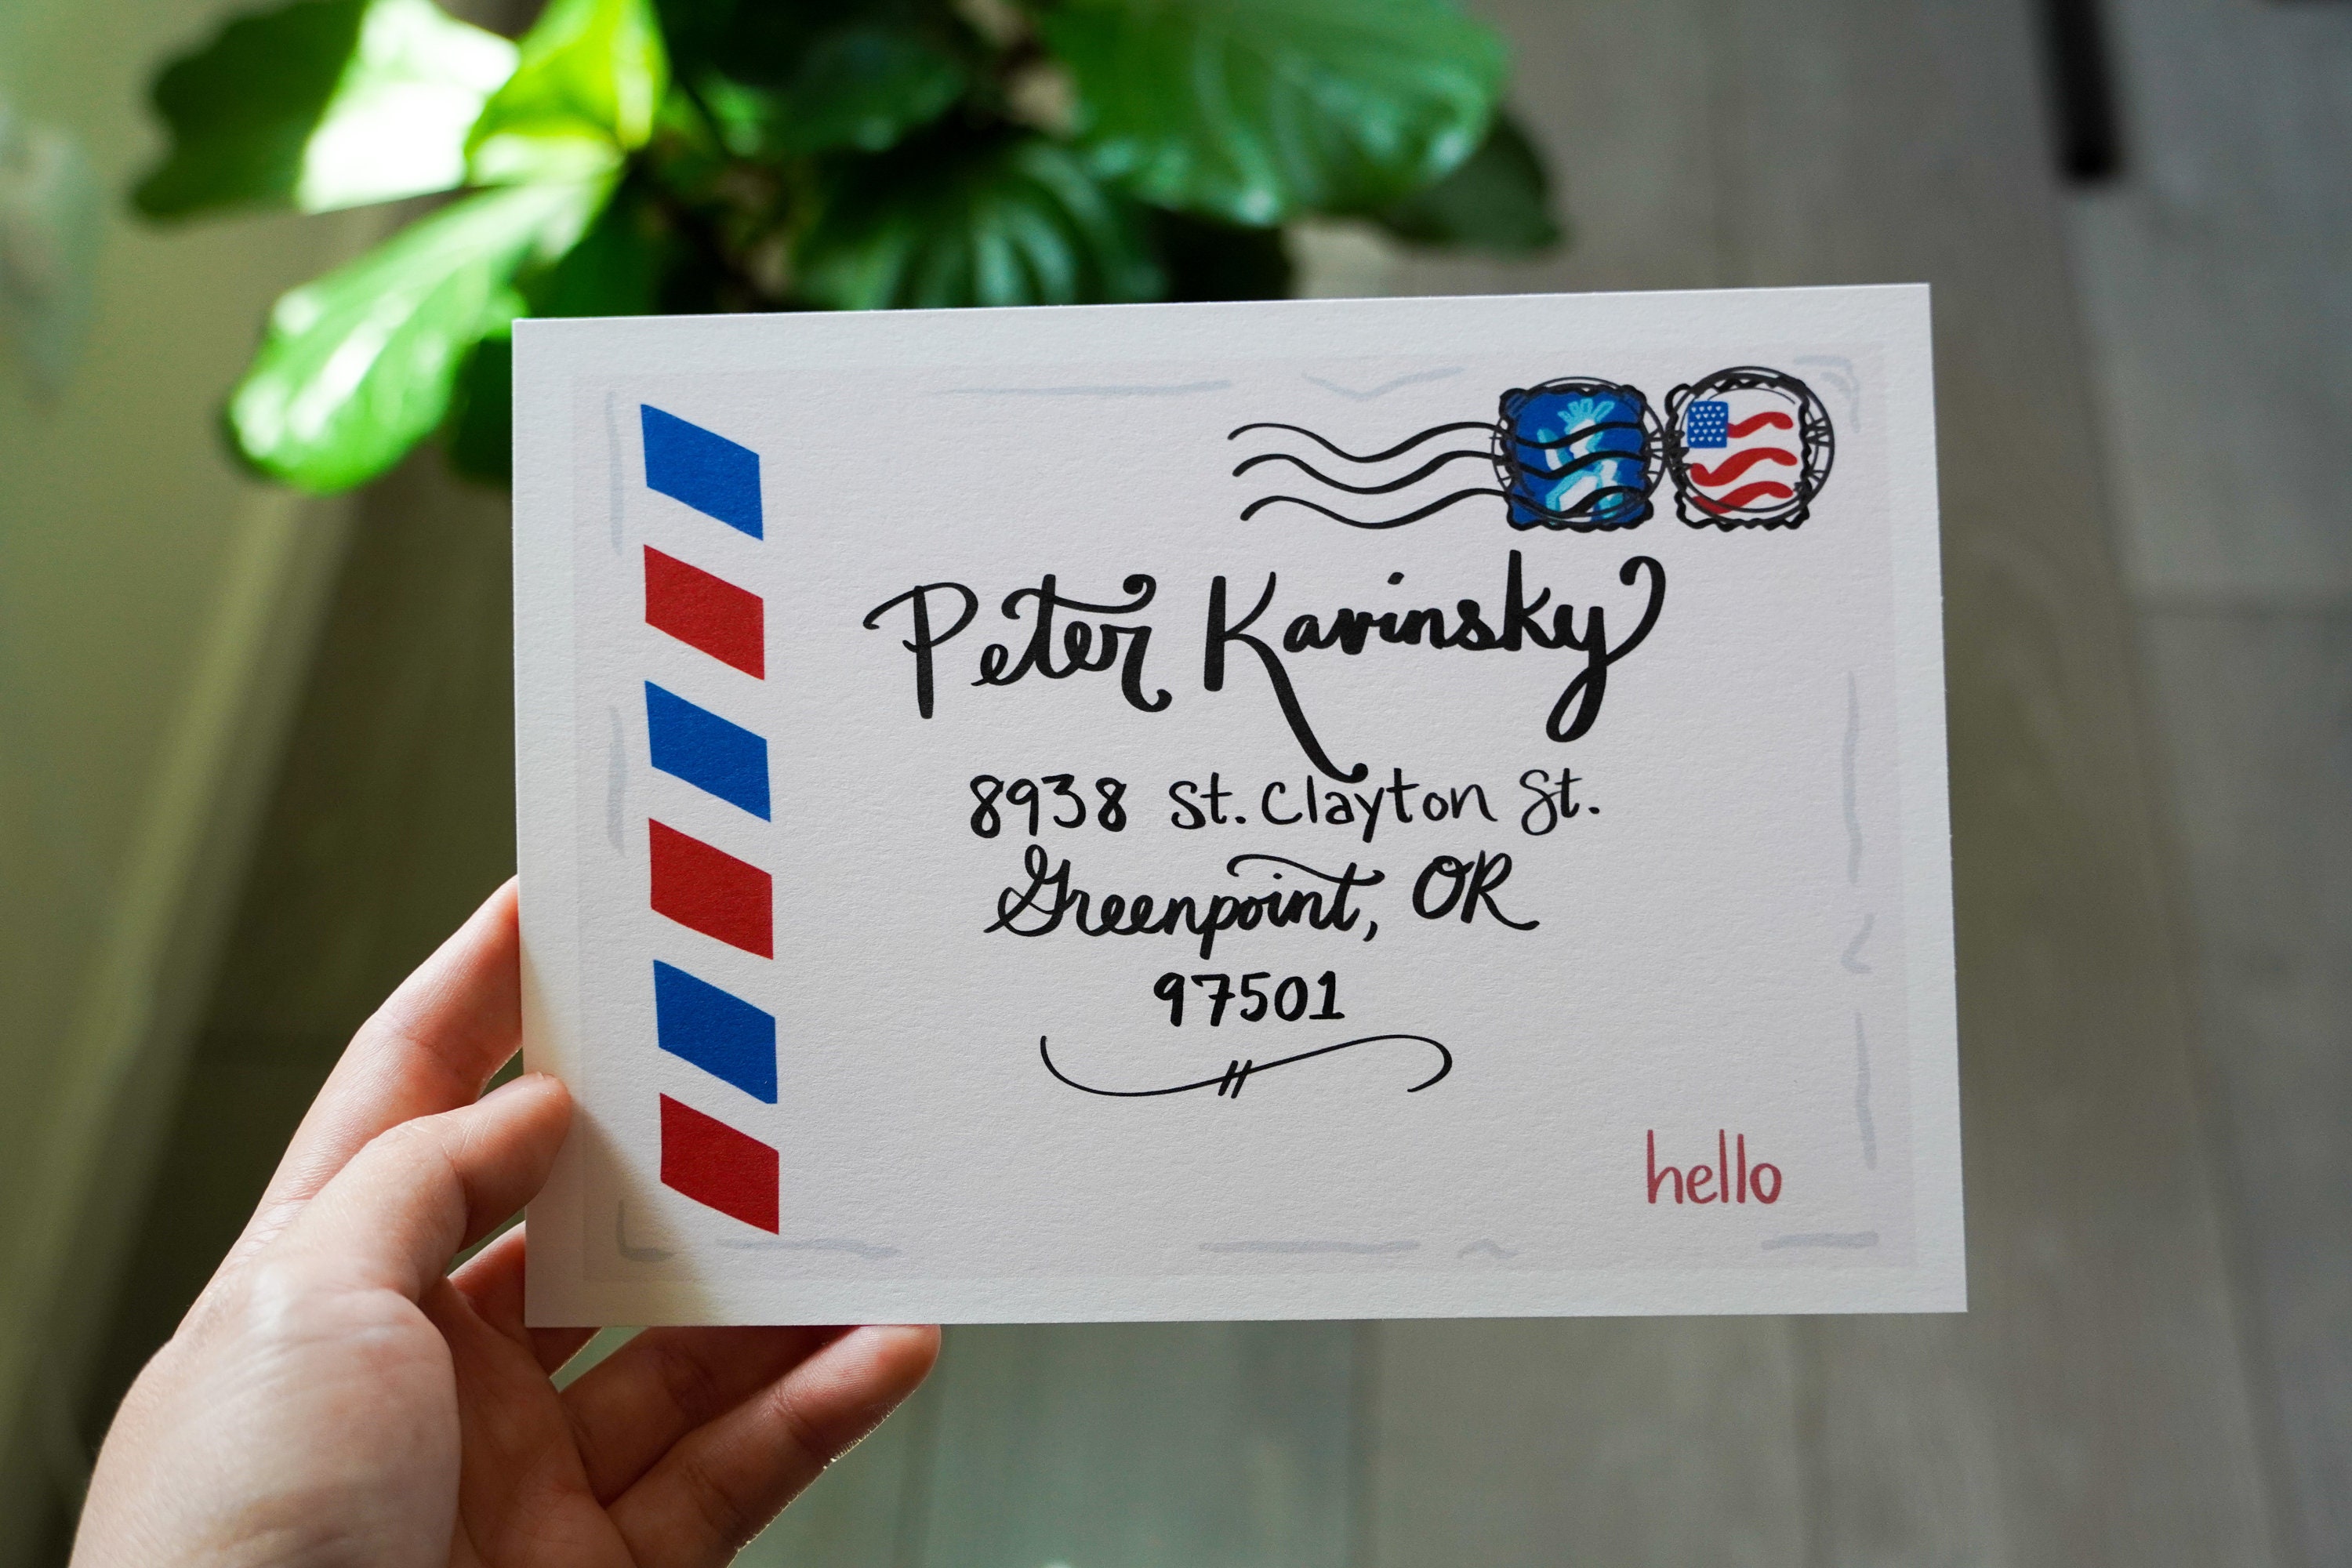 Peter Kavinsky
8938 St. Clayton St.
Greenpoint, OR
97501
hello